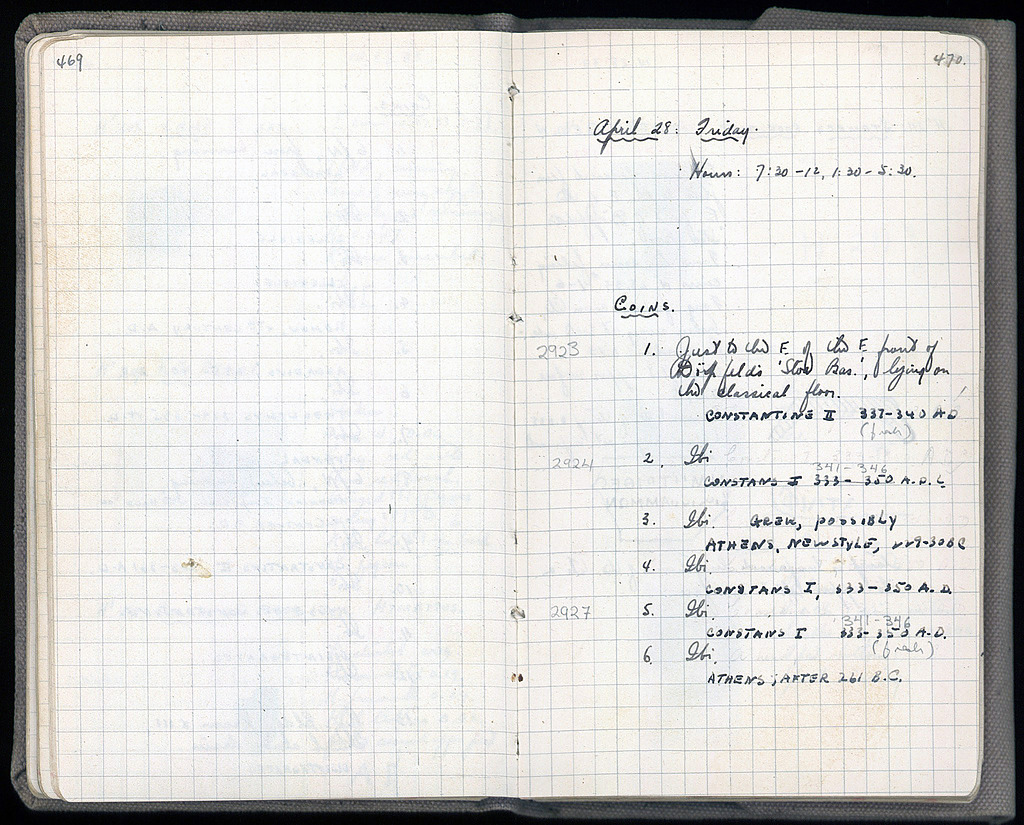 469
470.
April 28: Friday.
Hours: 7:30-12, 1:30-5:30.
Coins.
2923 1. Just to the E. of the E. front of
Dörpfeld's 'Stoa Bas.', lying on
the classical floor.
CONSTANTINE II 337-340 AD
(fresh)
2924 2. Ibi
341-346
CONSTANS I 333-350 A.D.
3. Ibi. GREEK, POSSIBLY
ATHENS, NEWSTYLE, 229-30 BC
4. Ibi.
CONSTANS I, 333-350 A.D.
2927 5. Ibi.
341-346
CONSTANS I 333-350 A.D.
(fresh)
6. Ibi.
ATHENS; AFTER 261 B.C.